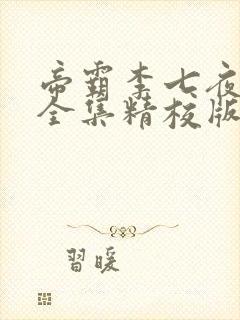 帝霸李七夜
全集精校版
習暖